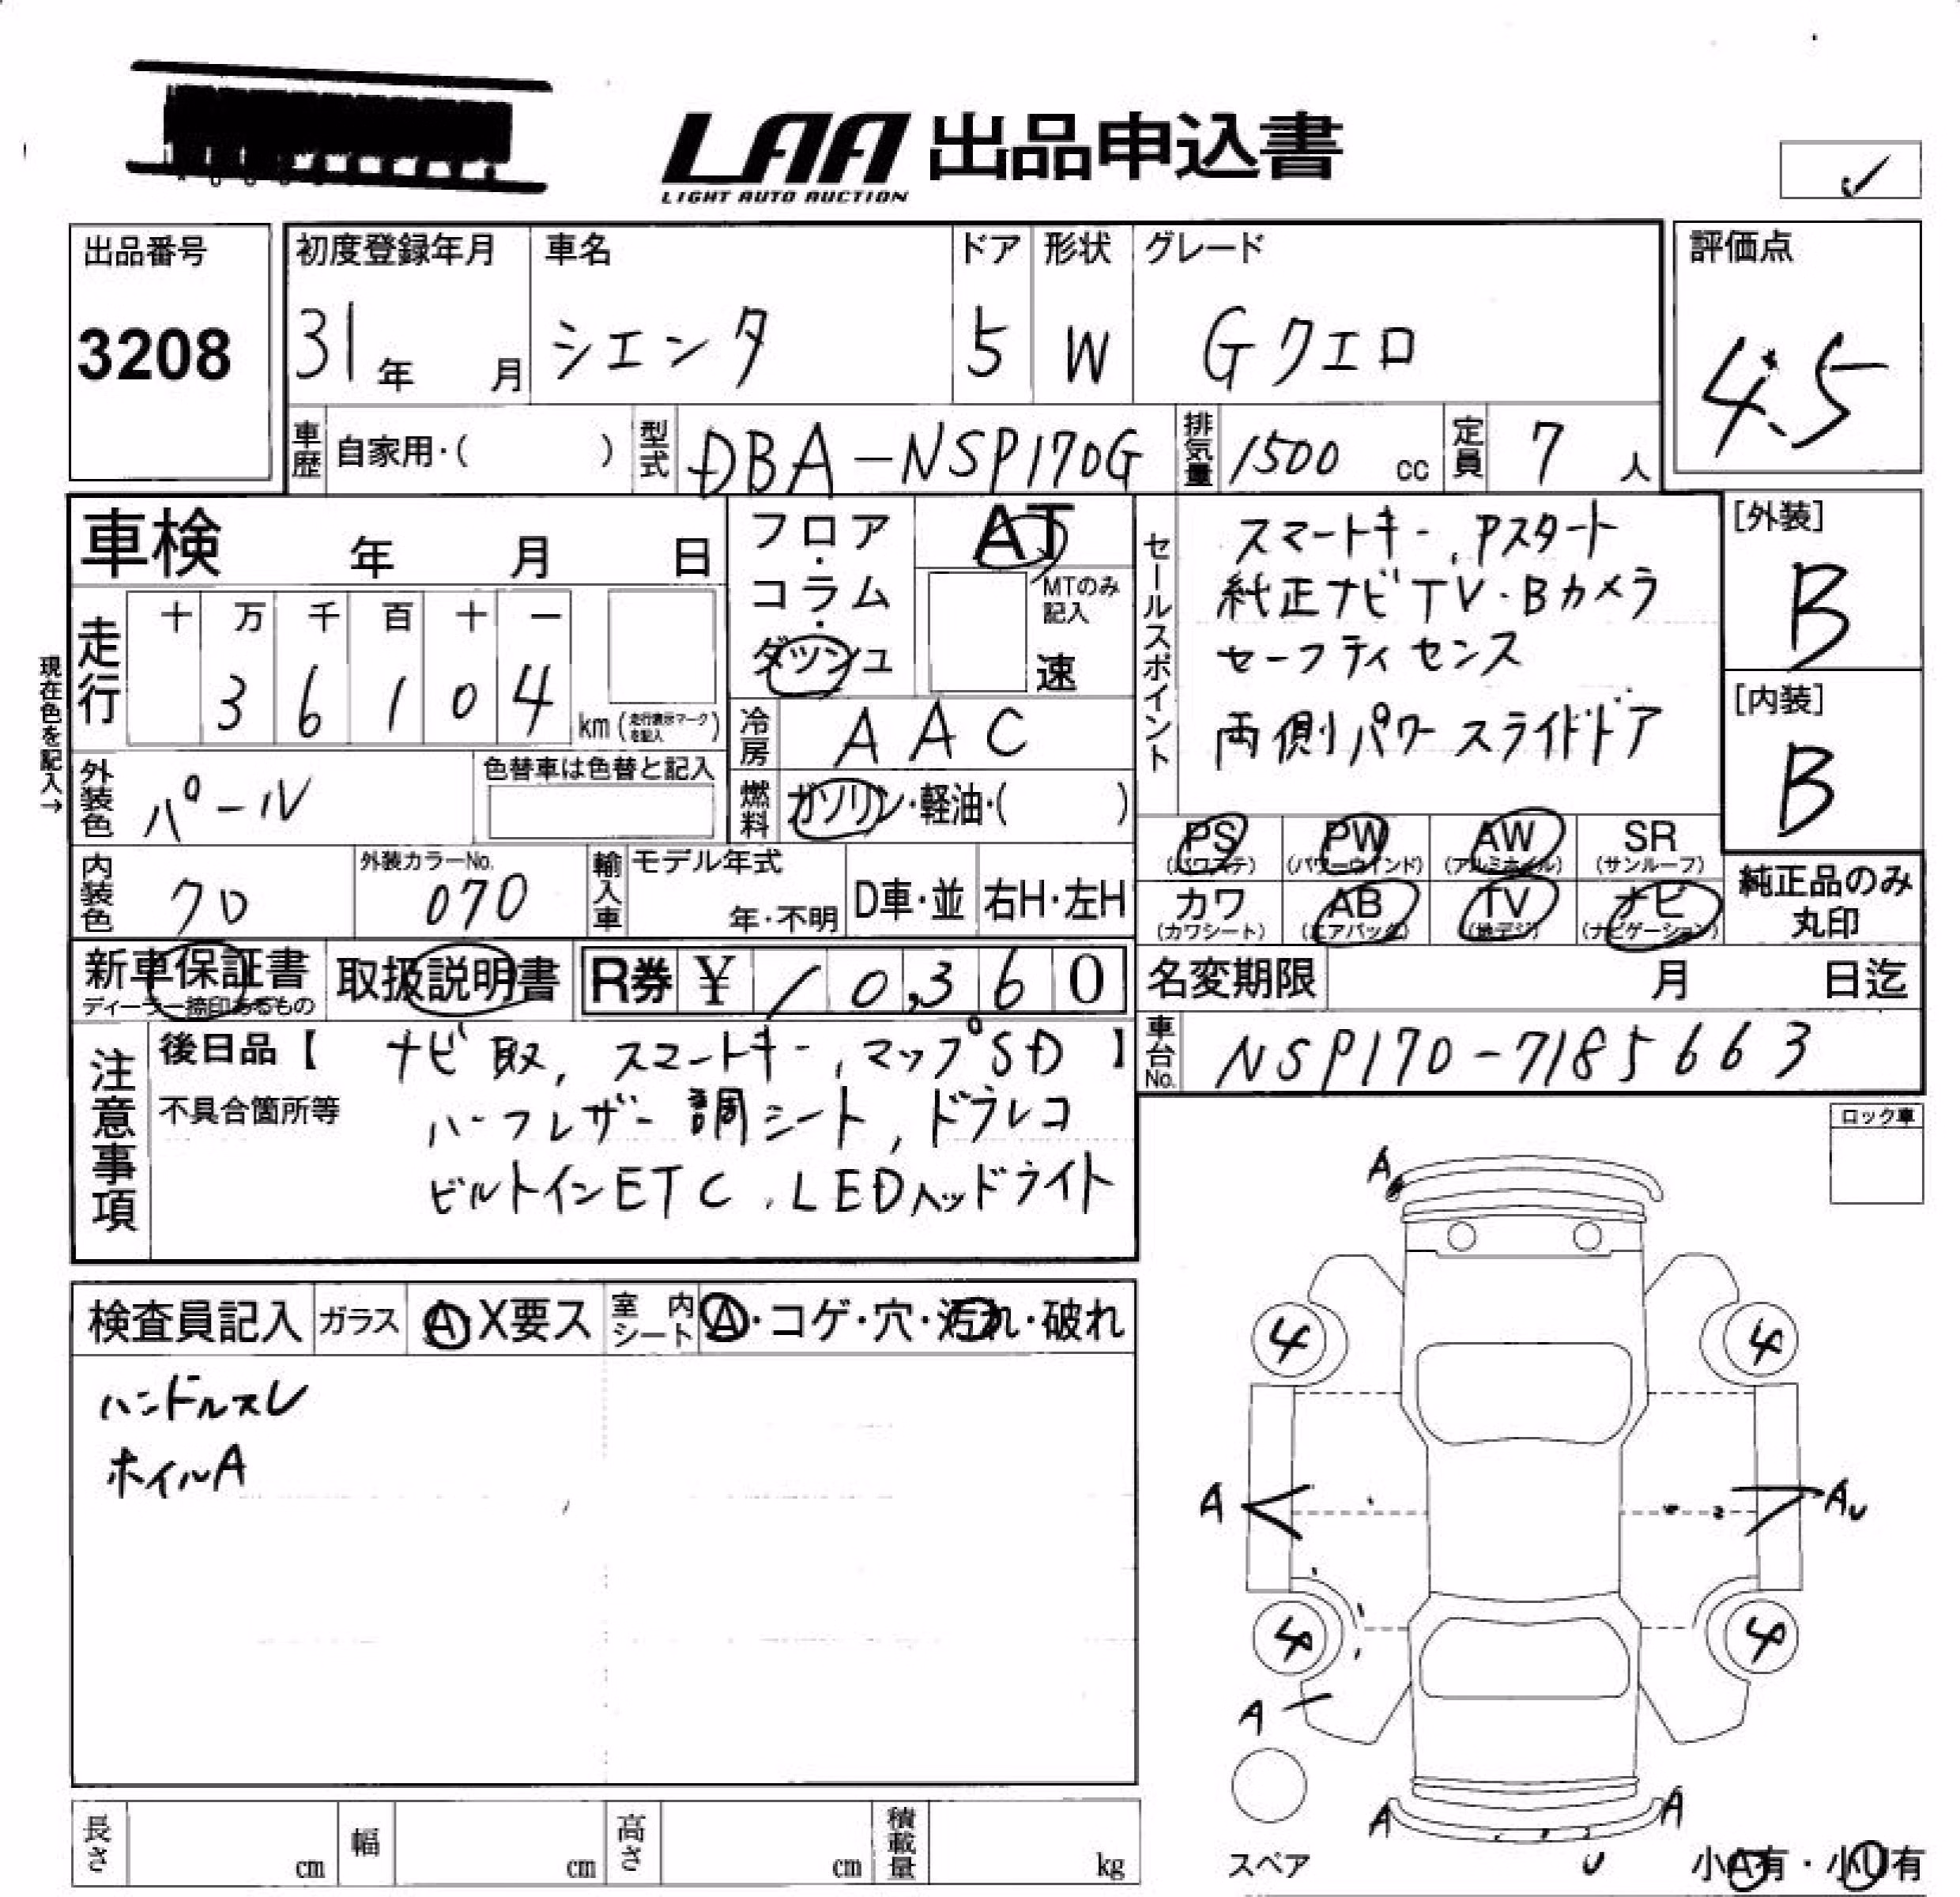 LAA 出品申込書
LIGHT AUTO AUCTION
出品番号
3208
初度登録年月
31年 月
車名
シエンタ
ドア
5
形状
W
グレード
Gクエロ
評価点
4.5
車歴 自家用・( )
型式 DBA-NSP170G
排気量 1500 cc
定員 7 人
車検 年 月 日
フロア・コラム・ダッシュ
AT
MTのみ記入
速
現在色を記入→
走行
十 万 千 百 十 一
3 6 1 0 4
km(走行表示マークを記入)
冷房 AAC
燃料 ガソリン・軽油・( )
外装色 パール
色替車は色替と記入
内装色 クロ
外装カラーNo. 070
輸入車 モデル年式 年・不明 D車・並 右H・左H
セールスポイント
スマートキー、Pスタート
純正ナビTV・Bカメラ
セーフティセンス
両側パワースライドドア
[外装]
B
[内装]
B
PS (パワステ)
PW (パワーウインド)
AW (アルミホイル)
SR (サンルーフ)
カワ (カワシート)
AB (エアバッグ)
TV (地デジ)
ナビ (ナビゲーション)
純正品のみ丸印
新車保証書
ディーラー捺印あるもの
取扱説明書
R券 ¥10,360
名変期限 月 日迄
車台No. NSP170-7185663
注意事項
後日品【 ナビ取、スマートキー、マップSD 】
不具合箇所等
ハーフレザー調シート、ドラレコ
ビルトインETC、LEDヘッドライト
ロック車
検査員記入 ガラス A・X要ス 室内シート A・コゲ・穴・汚れ・破れ
ハンドルスレ
ホイルA
A
4 4
A AU
4 4
A
A A
U
スペア
小A有・小U有
長さ cm 幅 cm 高さ cm 積載量 kg